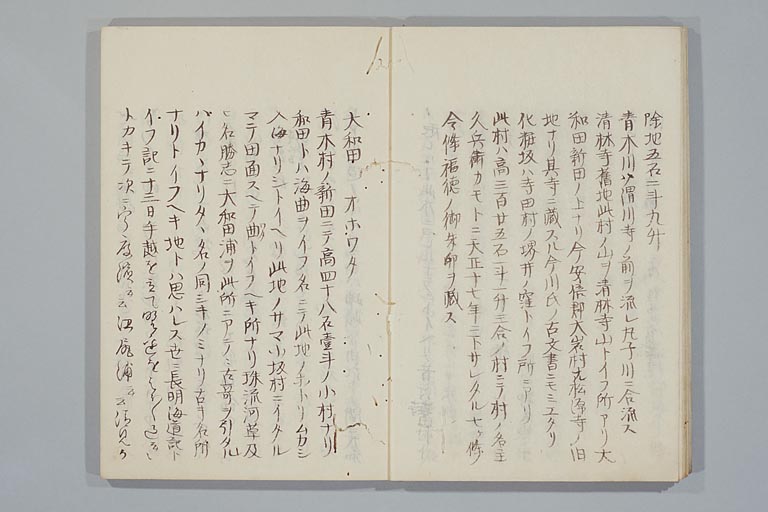 除地五石二斗九升
青木川ハ潤川寺ノ前ヲ流レ丸子川ニ合流ス
清林寺舊地此村ノ山ヲ清林寺山トイフ所アリ大
和田新田ノ上ナリ今安倍郡大岩村大松源寺ノ旧
地ナリ其寺ニ蔵スル今川氏ノ古文書ニモミエタリ
化粧坂ハ寺田村ノ堺井ノ窪トイフ所ニアリ
此村ハ高三百廿五石一斗一升三合ノ村ニテ村ノ名主
久兵衛カモトニ天正十七年ニ下サレタル七ヶ條ノ
令條福徳ノ御朱印ヲ蔵ス
大和田 オホワタ
青木村ノ新田ニテ高四十八石壹斗ノ小村ナリ
和田トハ海曲ヲイフ名ニテ此地ノホトリムカシ
入海ナリシトイヘリ此地ノサマ小坂村ニイタル
マテ田面スヘテ曲トイフヘキ所ナリ珠流河草及
ヒ名勝志ニ大和田浦ヲ此所ニアテ古哥ヲ引タル
ハイカヽナリタヽ名ノ同シキノミナリ古キ名所
ナリトイフヘキ地トハ思ハレス世ニ長明海道記ト
イフ記ニ十三日手越を立て野邊を
トカキテ次ニ 濱 浦 清見か